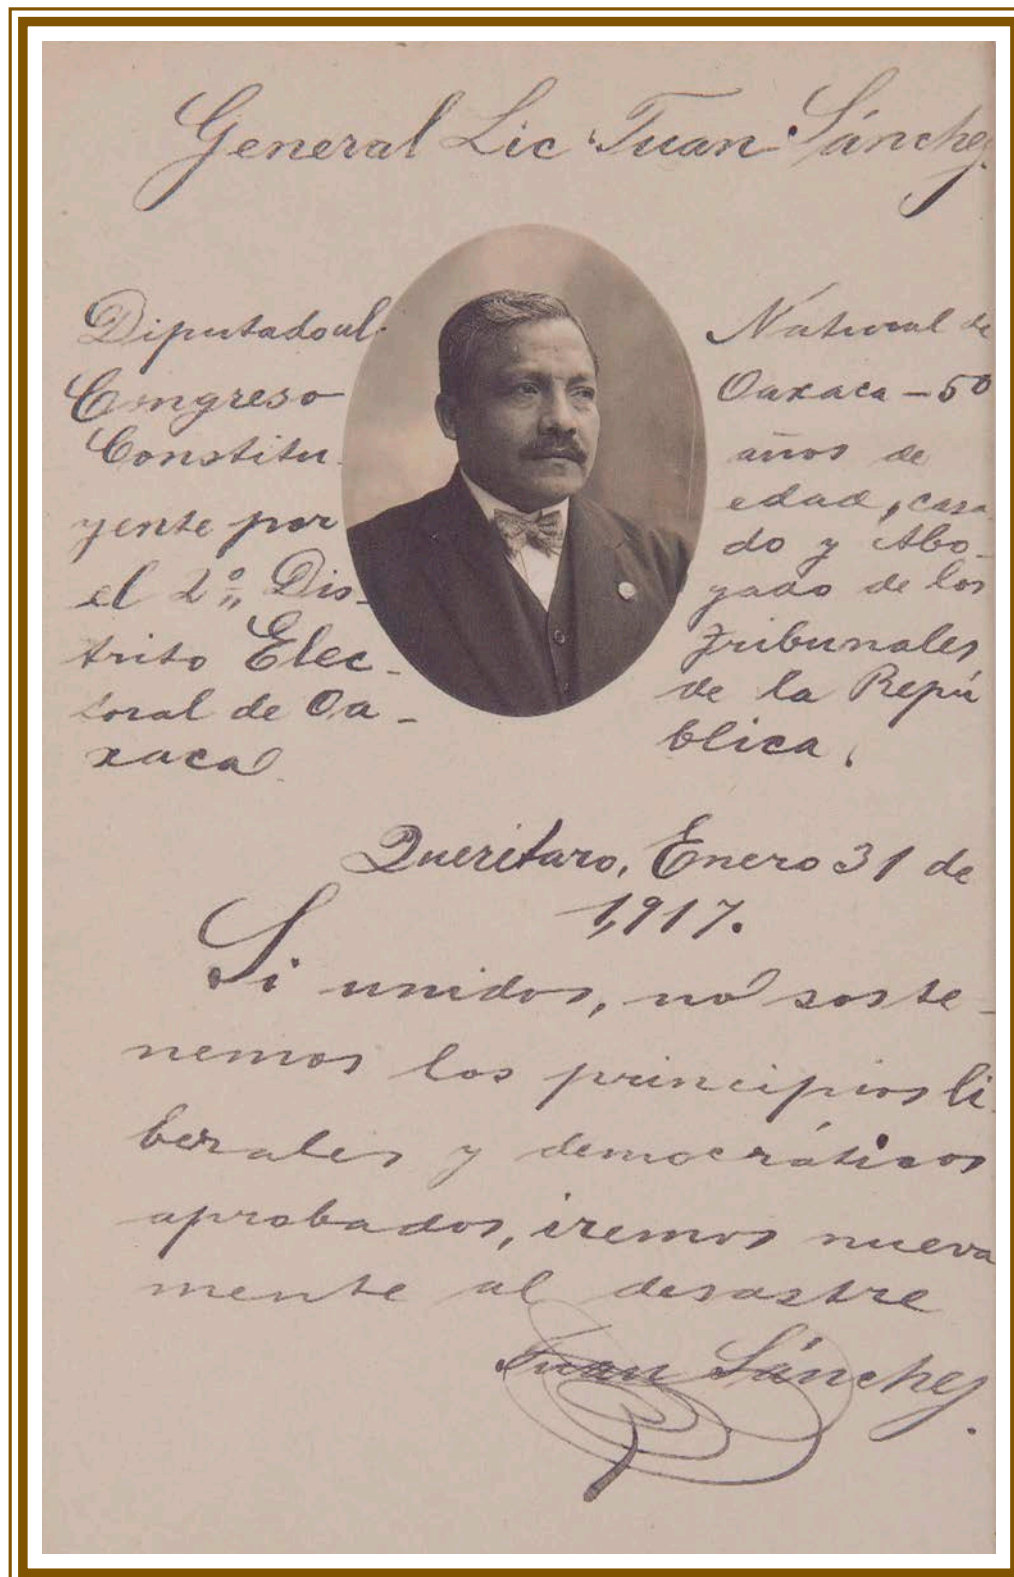 General Lic Juan Sánchez.
Diputado al
Congreso
Constitu
yente por
el 2º Dis-
trito Elec-
toral de Oa-
xaca.
Natural de
Oaxaca - 50
años de
edad, casa
do y Abo-
gado de los
Tribunales
de la Repú
blica.
Querétaro, Enero 31 de
1,917.
Si unidos, no soste-
nemos los principios li
berales y democráticos
aprobados, iremos nueva
mente al desastre
Juan Sánchez.